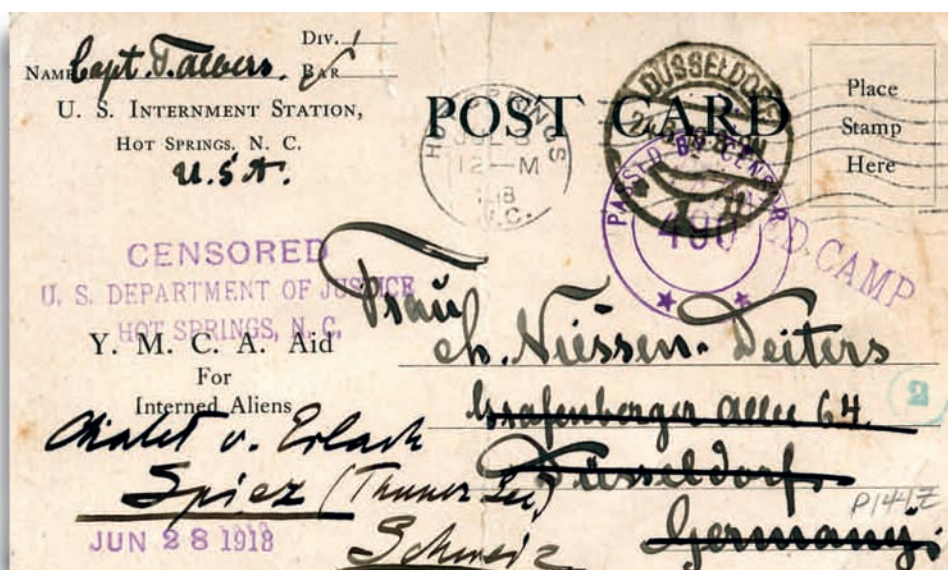 Div. 1
NAME Capt. T. Albers. BAR
U. S. INTERNMENT STATION,
HOT SPRINGS, N. C.
U.S.A.
POST CARD
HOT SPRINGS
JUL 3
12—M
1918
N.C.
DÜSSELDORF
PASSED BY CENSOR
490
CAMP
Place
Stamp
Here
CENSORED
U. S. DEPARTMENT OF JUSTICE
HOT SPRINGS, N. C.
Y. M. C. A. Aid
For
Interned Aliens
Frau
Ch. Niessen-Deiters
Grafenberger Allee 64.
Düsseldorf.
Germany.
Chalet v. Erlach
Spiez (Thuner See)
Schweiz
JUN 28 1918
2
P144.Z